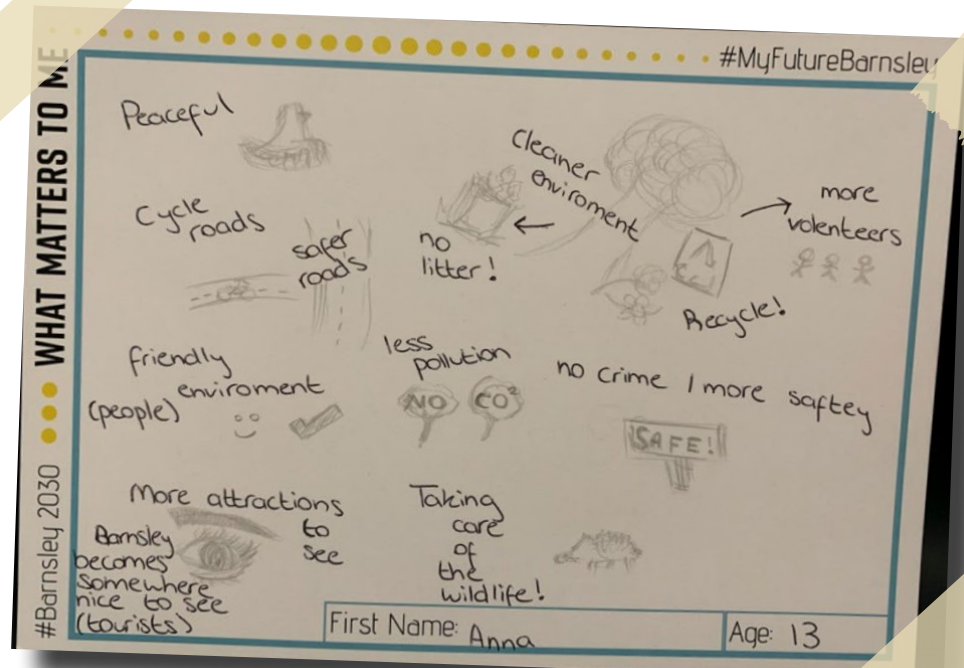 #MyFutureBarnsley
WHAT MATTERS TO ME
#Barnsley 2030
Peaceful
Cycle
roads
safer
roads
no
litter!
Cleaner
enviroment
more
volenteers
Recycle!
friendly
enviroment
(people)
less
pollution
NO CO²
no crime / more saftey
SAFE!
More attractions
to
see
Barnsley
becomes
somewhere
nice to see
(tourists)
Taking
care
of
the
wildlife!
First Name: Anna
Age: 13